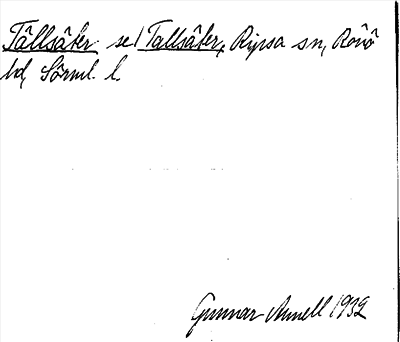 Tållsåker se/ Tallsåker, Ripsa sn, Rönö
hd, Sörml. l.
Gunnar Annell 1932